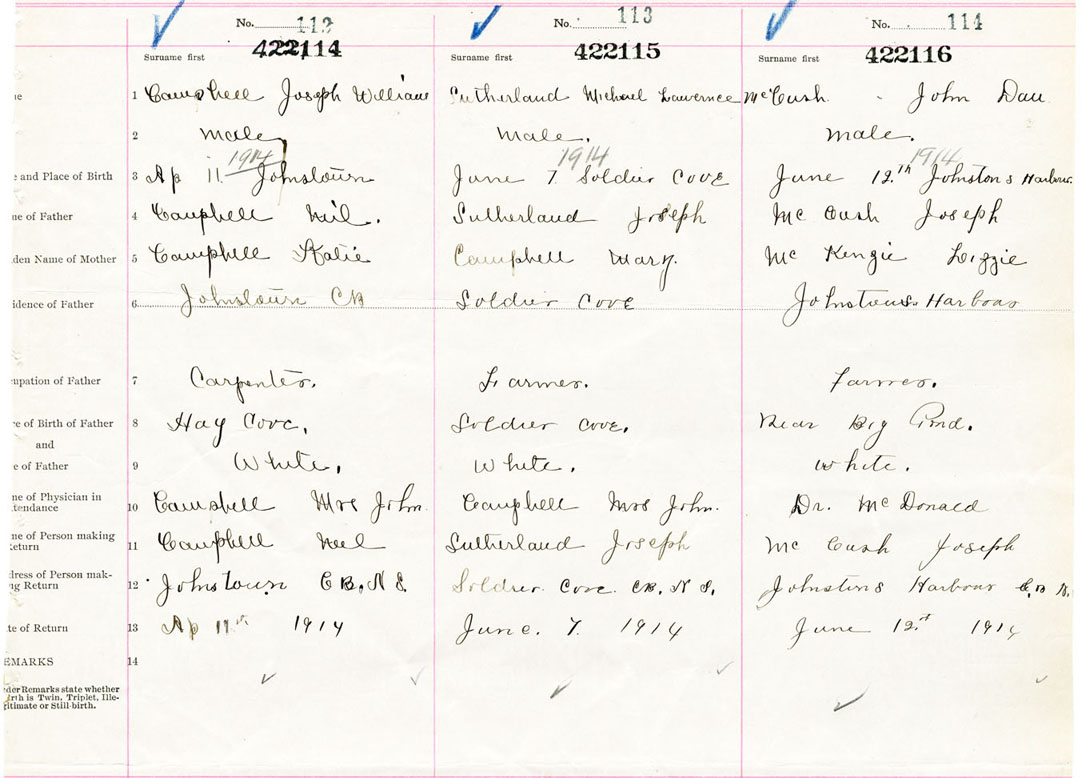 No. 112 No. 113 No. 114
422114 422115 422116
Surname first Surname first Surname first
1 Campbell Joseph William Sutherland Michael Lawernce McCush John Dan
2 male male. male.
1914 1914 1914
e and Place of Birth 3 Ap 11. Johnstown June 7. Soldier Cove June 12th Johnstons Harbour.
ne of Father 4 Campbell Neil. Sutherland Joseph McCush Joseph
iden Name of Mother 5 Campbell Katie Campbell Mary. McKenzie Lizzie
idence of Father 6 Johnstown CB Soldier Cove Johnstons Harbour
upation of Father 7 Carpenter. Farmer. Farmer.
re of Birth of Father 8 Hay Cove, Soldier Cove, Near Big Pond.
and
e of Father 9 White, White. White.
ne of Physician in
tendance 10 Campbell Mrs John. Campbell Mrs John. Dr. McDonald
ne of Person making
Return 11 Campbell Neil Sutherland Joseph McCush Joseph
dress of Person mak-
ng Return 12 Johnstown C.B. N.S. Soldier Cove C.B. N.S. Johnstons Harbour C.B N.
te of Return 13 Ap 11th 1914 June. 7. 1914 June 12th 1914
EMARKS 14
der Remarks state whether
irth is Twin, Triplet, Ille-
gitimate or Still-birth.